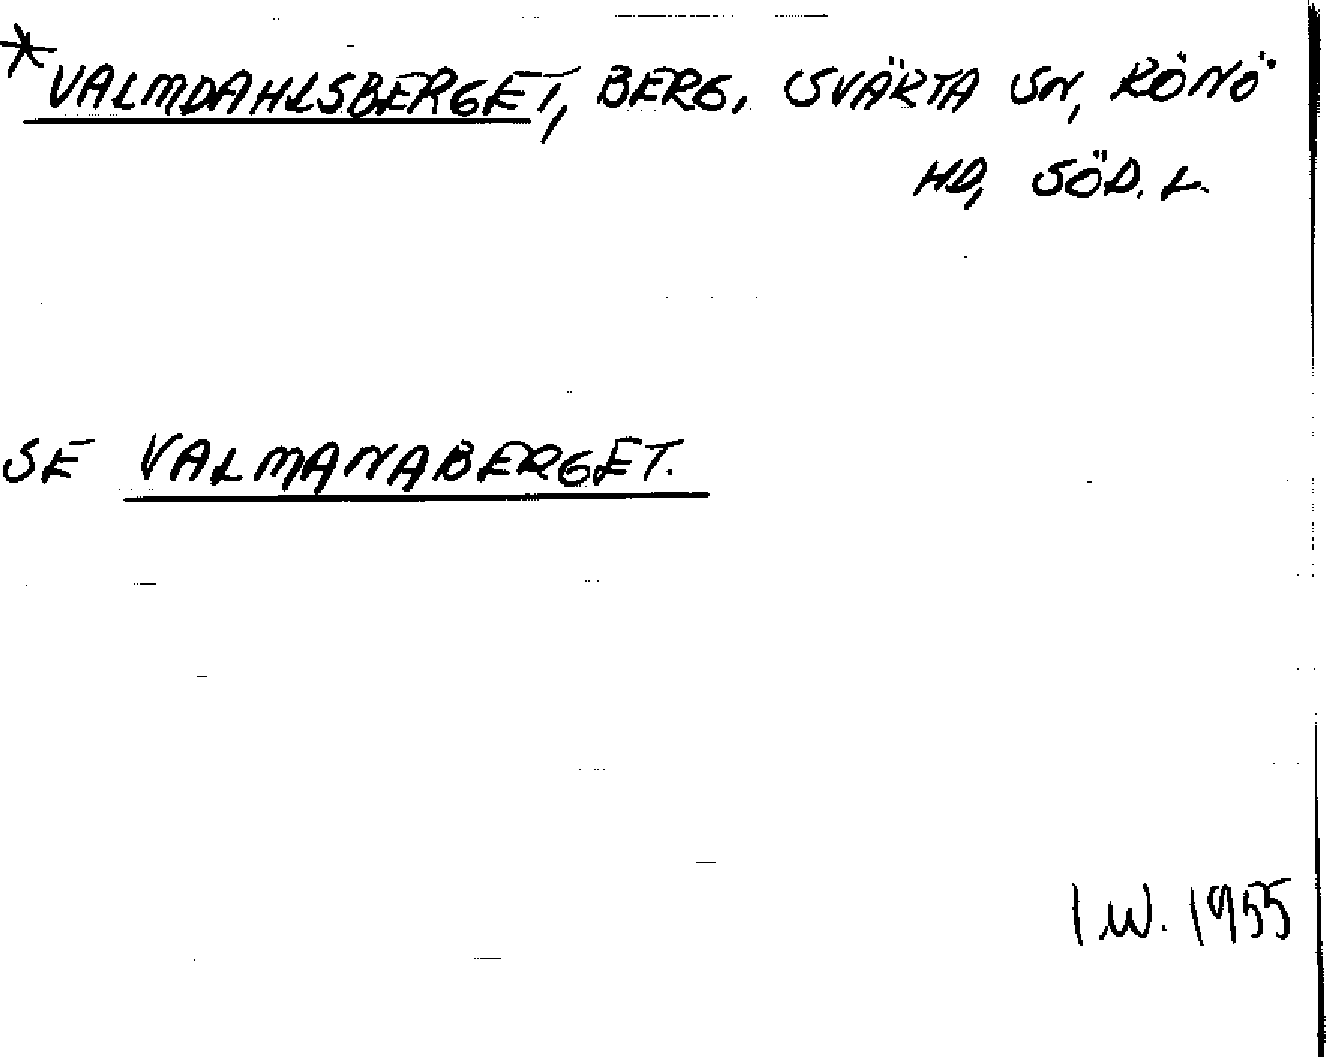 *VALMDAHLSBERGET, BERG, SVÄRTA SN, RÖNÖ
HD, SÖD. L.
SE VALMANABERGET.
I W. 1955